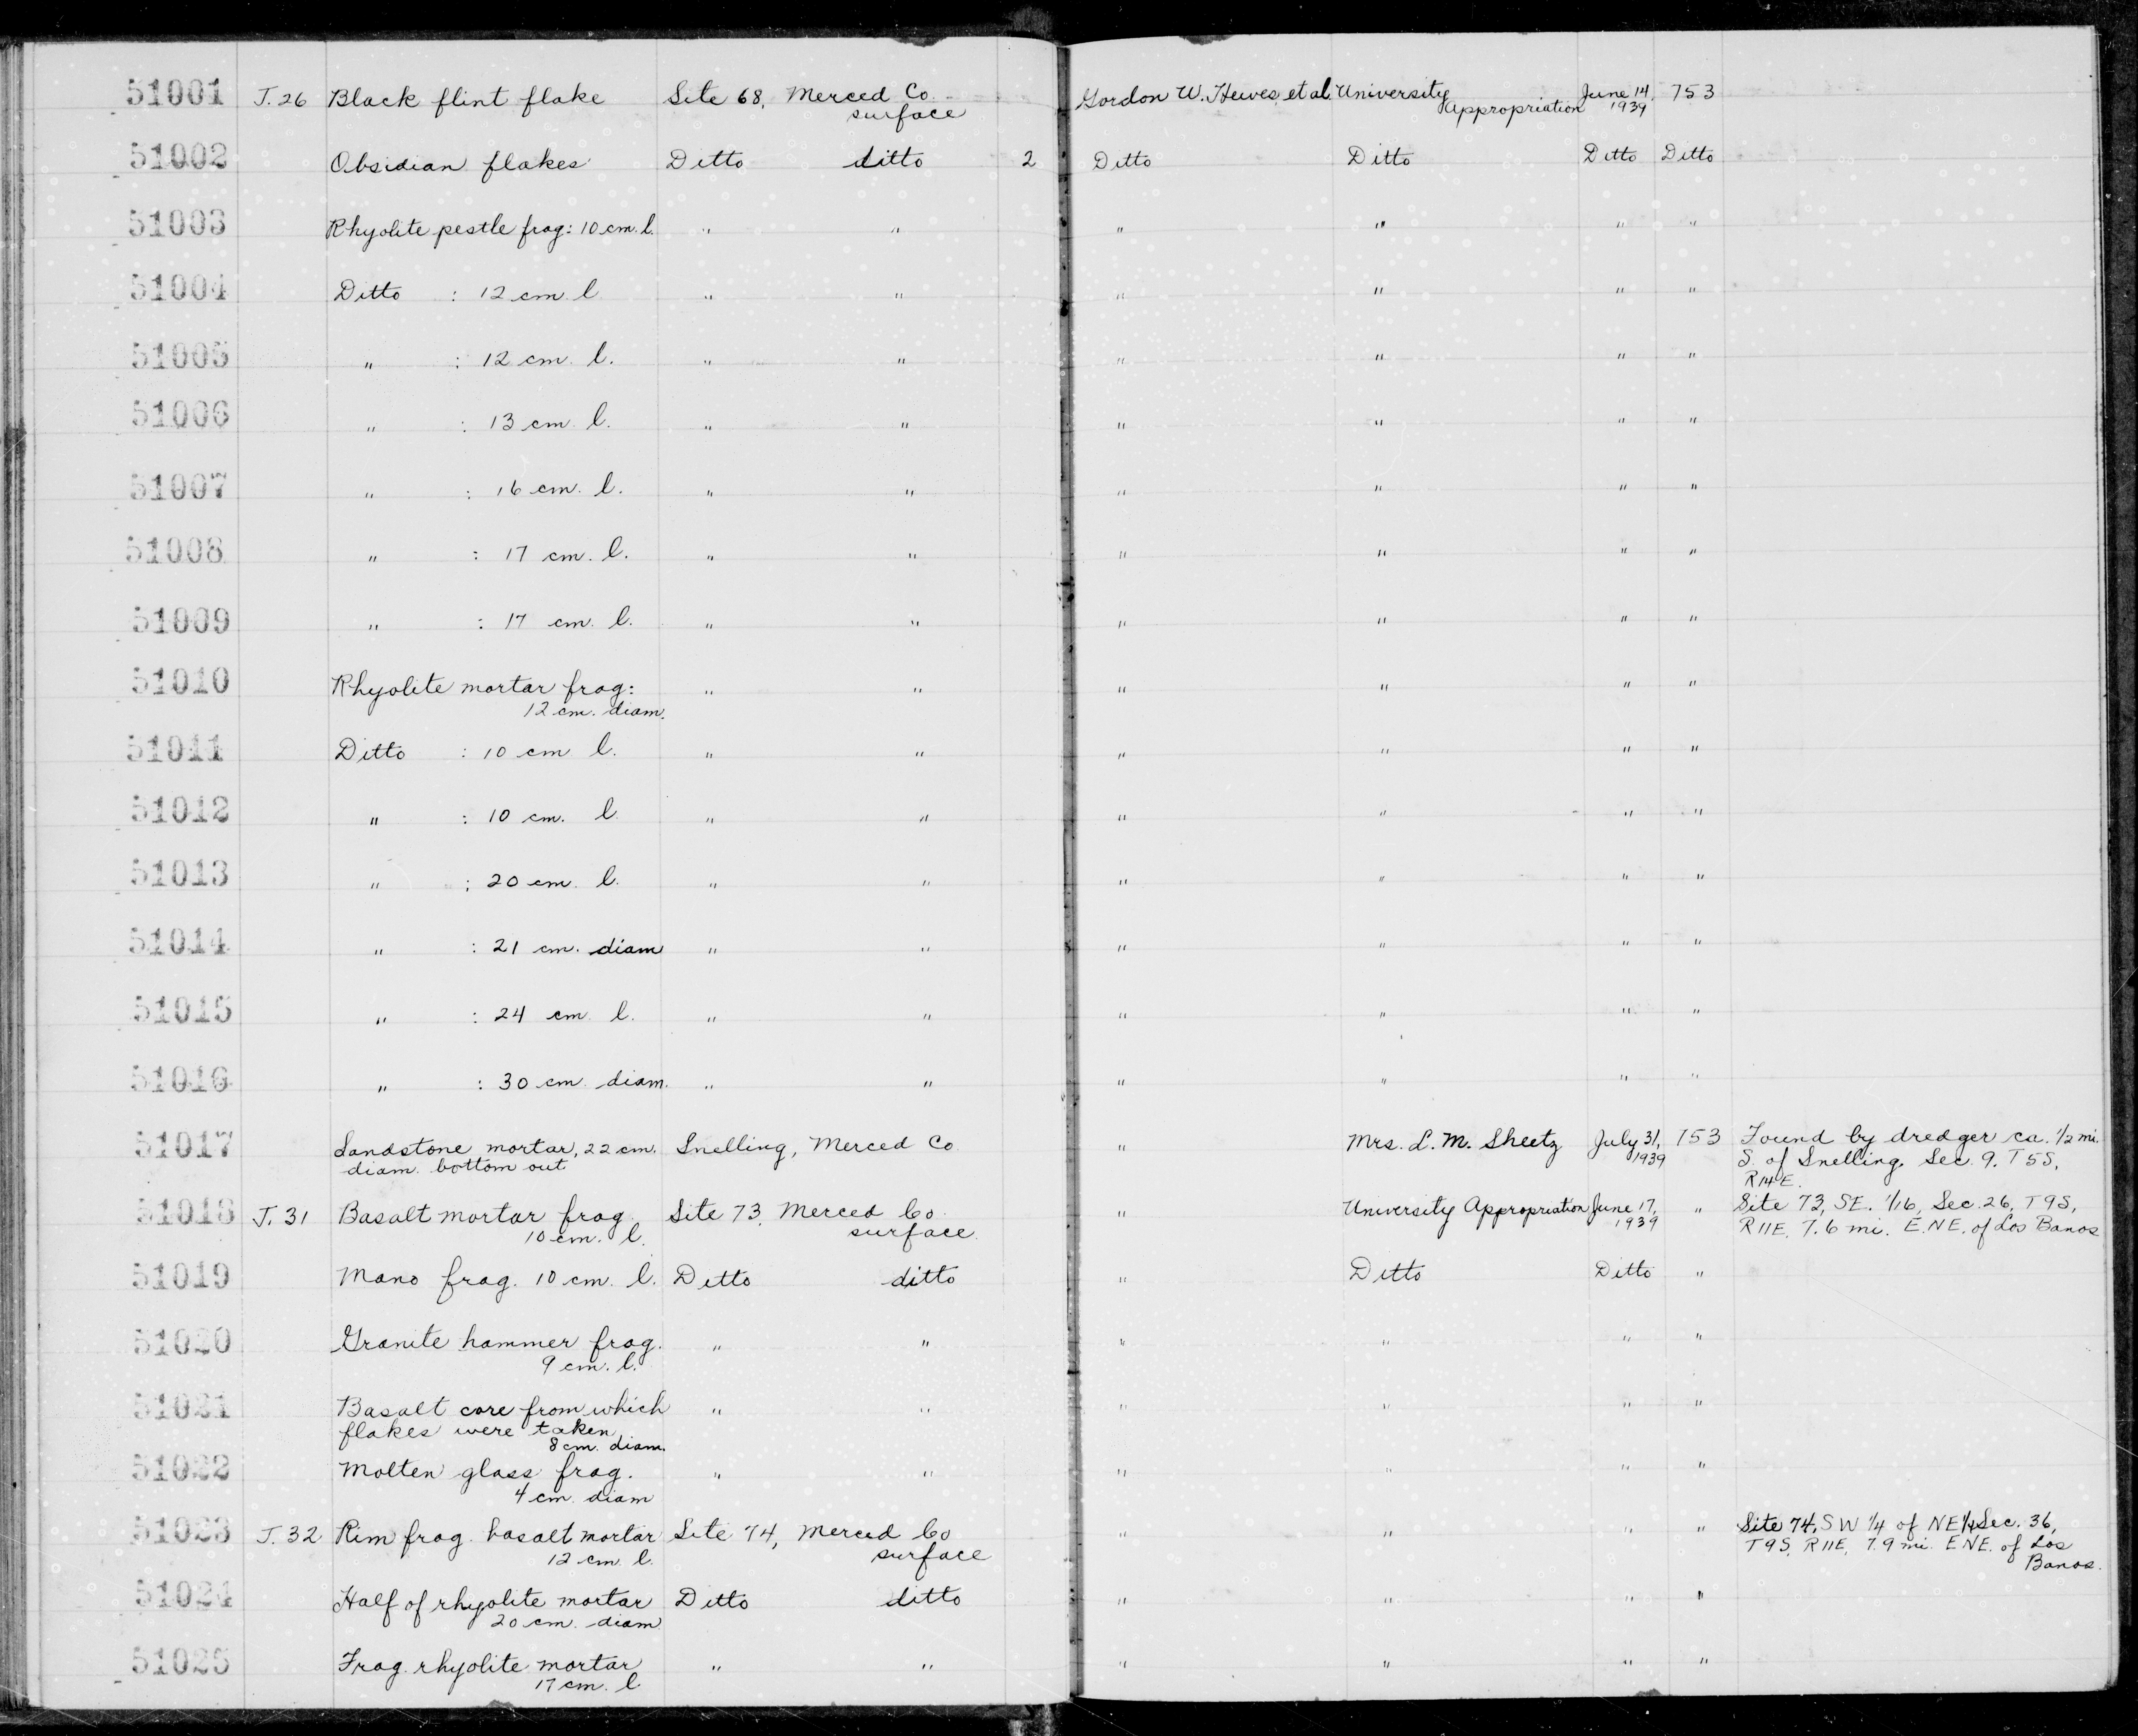 51001 J.26 Black flint flake Site 68, Merced Co. Gordon W. Hewes, et al. University June 14, 753
surface Appropriation 1939
51002 Obsidian flakes Ditto ditto 2 Ditto Ditto Ditto Ditto
51003 Rhyolite pestle frag: 10 cm. l. " " " " " "
51004 Ditto : 12 cm l " " " " " "
51005 " : 12 cm. l. " " " " " "
51006 " : 13 cm. l. " " " " " "
51007 " : 16 cm. l. " " " " " "
51008 " : 17 cm. l. " " " " " "
51009 " : 17 cm. l. " " " " " "
51010 Rhyolite mortar frag: " " " " " "
12 cm. diam.
51011 Ditto : 10 cm l. " " " " " "
51012 " : 10 cm. l. " " " " " "
51013 " : 20 cm. l. " " " " " "
51014 " : 21 cm. diam " " " " " "
51015 " : 24 cm l. " " " " " "
51016 " : 30 cm diam. " " " " " "
51017 Sandstone mortar, 22 cm. Snelling, Merced Co " Mrs. L. M. Sheetz July 31, 753 Found by dredger ca. 1/2 mi.
diam. bottom out 1939 S. of Snelling. Sec. 9. T5S,
R14E.
51018 J. 31 Basalt mortar frag. Site 73, Merced Co. " University Appropriation June 17, " Site 73, SE. 1/16, Sec. 26, T9S,
10 cm. l. surface 1939 R11E. 7.6 mi. E.NE. of Los Banos
51019 Mano frag. 10 cm. l. Ditto ditto " Ditto Ditto "
51020 Granite hammer frag. " " " " " "
9 cm. l.
51021 Basalt core from which " " " " " "
flakes were taken
8 cm. diam.
51022 Molten glass frag. " " " " " "
4 cm. diam
51023 J. 32 Rim frag. basalt mortar Site 74, Merced Co " " " " Site 74, SW 1/4 of NE1/4 Sec. 36,
12 cm l. surface T9S, R11E, 7.9 mi. ENE. of Los
Banos.
51024 Half of rhyolite mortar Ditto ditto " " " "
20 cm. diam
51025 Frag. rhyolite mortar " " " " " "
17 cm. l